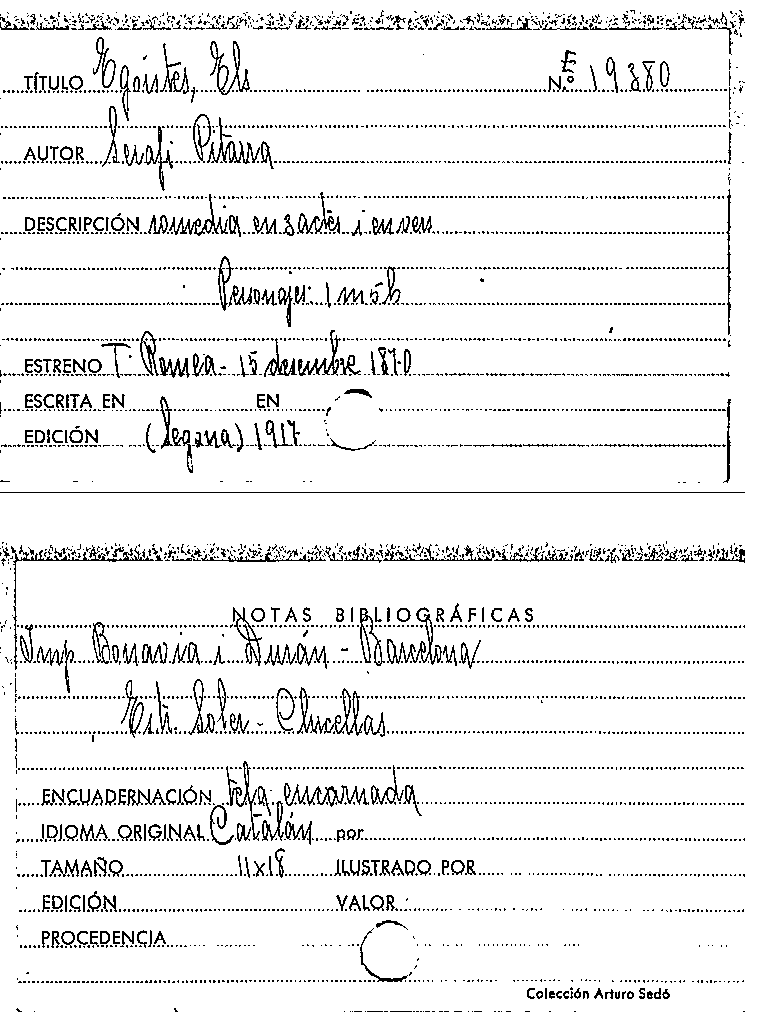 TÍTULO Egoistes, Els Nº E 19380
AUTOR Serafi Pitarra
DESCRIPCIÓN comedia en 3 actes i en vers
Personajes: 1 m 5 h
ESTRENO T. Romea - 15 desembre 1870
ESCRITA EN EN
EDICIÓN (Segona) 1917
NOTAS BIBLIOGRÁFICAS
Imp Bonavia i Durán - Barcelona
Est. Soler - Clucellas
ENCUADERNACIÓN tela encarnada
IDIOMA ORIGINAL Catalán por
TAMAÑO 11x18 ILUSTRADO POR
EDICIÓN VALOR
PROCEDENCIA
Colección Arturo Sedó